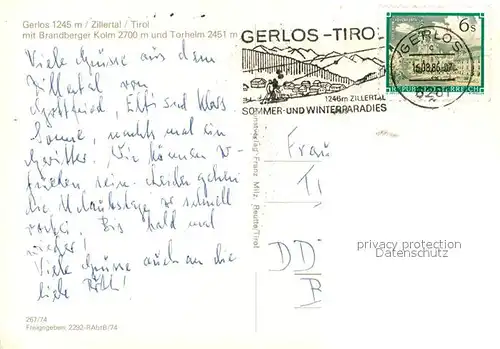 Gerlos 1245 m / Zillertal / Tirol
mit Brandberger Kolm 2700 m und Torhelm 2451 m
GERLOS - TIROL
1246m ZILLERTAL
SOMMER-UND WINTERPARADIES
GERLOS
6281
6s
REPUBLIK ÖSTERREICH
Viele Grüsse aus dem
Zillertal von
Gottfried, und Klaus.
Sonne, nachts mal ein
Gewitter. Wir können zu-
frieden sein. Leider gehen
die Urlaubstage so schnell
vorbei. Bis bald mal
wieder!
Viele Grüsse auch an die
liebe
Frau
DD
privacy protection
Datenschutz
Franz Milz, Reutte/Tirol
267/74
Freigegeben: 2292-RAbtB/74